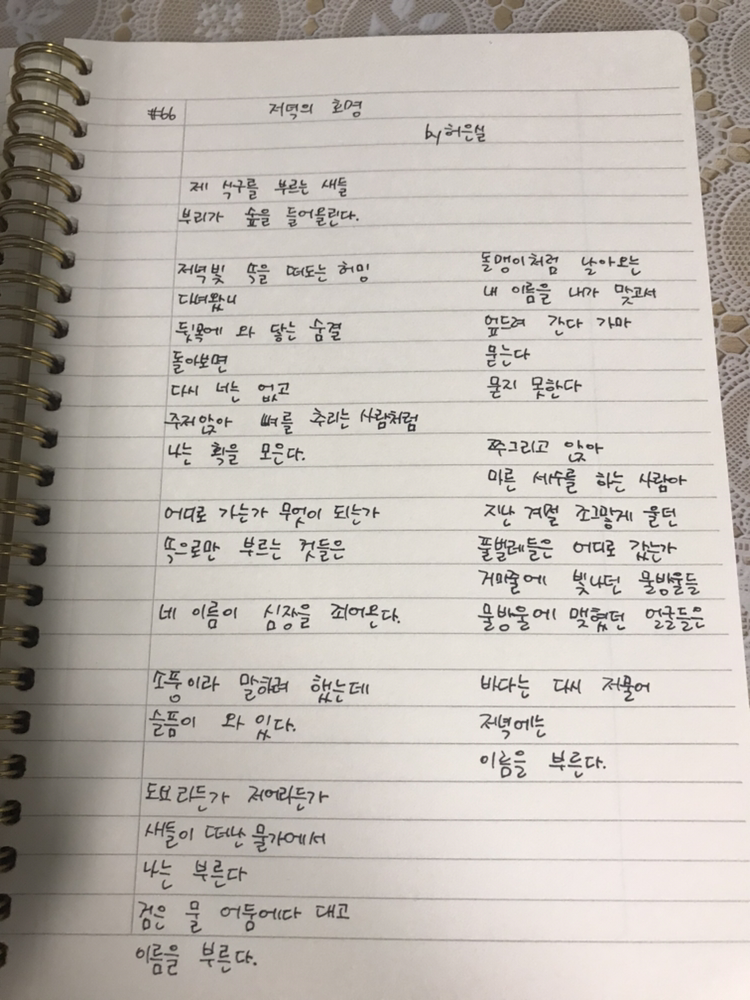 #66 저녁의 호명
by 허은실
제 식구를 부르는 새들
부리가 숲을 들어올린다.
저녁빛 속을 떠도는 허밍
다녀왔니
뒷목에 와 닿는 숨결
돌아보면
다시 너는 없고
주저앉아 뼈를 추리는 사람처럼
나는 획을 모은다.
어디로 가는가 무엇이 되는가
속으로만 부르는 것들은
네 이름이 심장을 죄어온다.
소풍이라 말하려 했는데
슬픔이 와 있다.
도요라든가 저어라든가
새들이 떠난 물가에서
나는 부른다
검은 물 어둠에다 대고
이름을 부른다.
돌맹이처럼 날아오는
내 이름을 내가 맞고서
엎드려 간다 가마
묻는다
묻지 못한다
쭈그리고 앉아
마른 세수를 하는 사람아
지난 계절 조그맣게 울던
풀벌레들은 어디로 갔는가
거미줄에 빛나던 물방울들
물방울에 맺혔던 얼굴들은
바다는 다시 저물어
저녁에는
이름을 부른다.